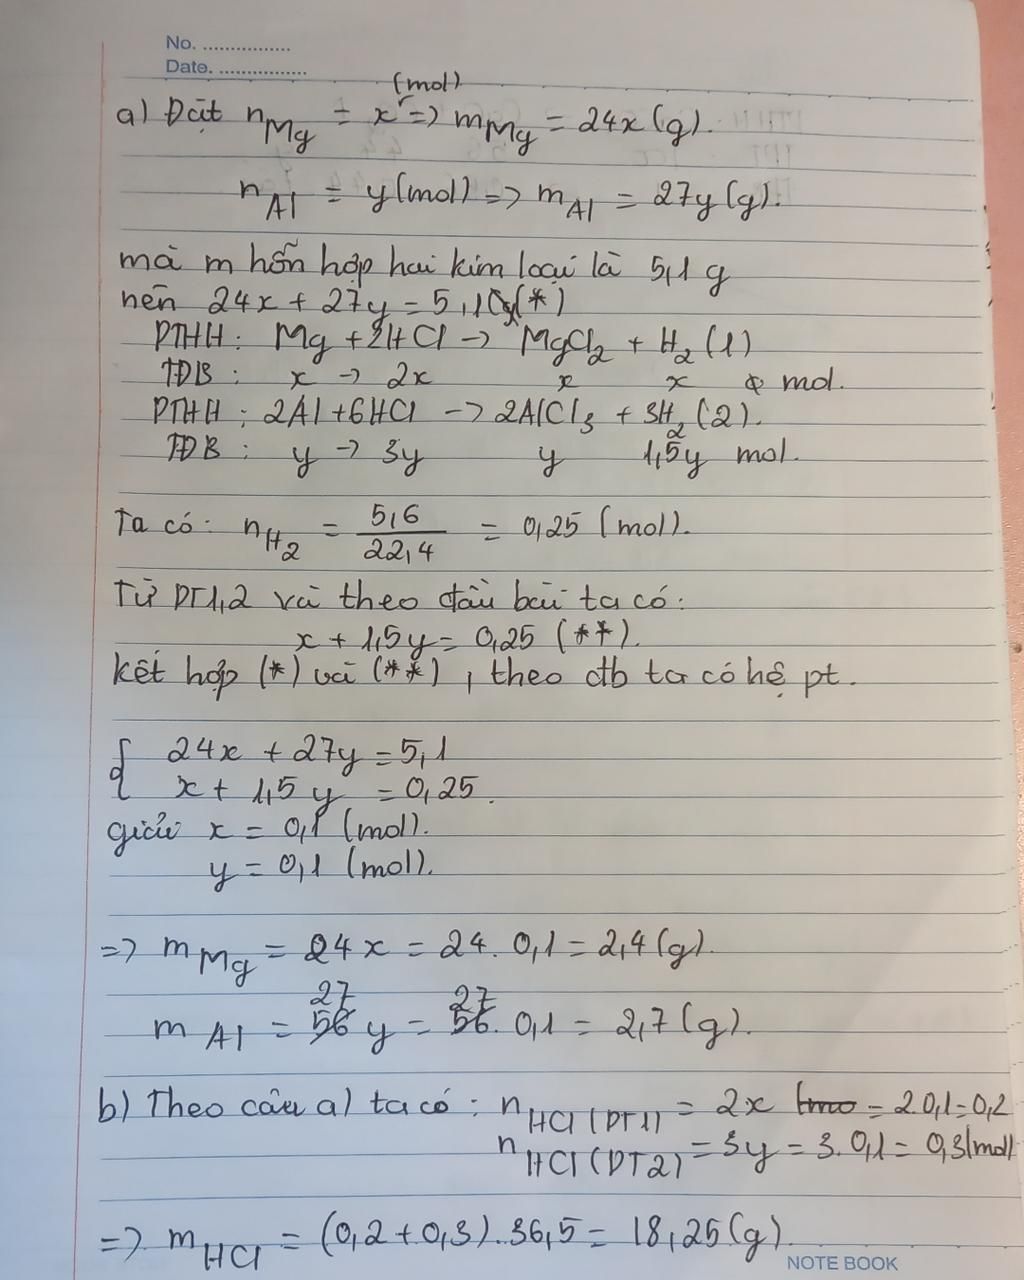 No. ................
Date. ................
(mol)
a) Đặt nMg = x => mMg = 24x (g).
nAl = y (mol) => mAl = 27y (g).
mà m hỗn hợp hai kim loại là 5,1 g
nên 24x + 27y = 5,1 (*)
PTHH: Mg + 2HCl -> MgCl2 + H2 (1)
TĐB : x -> 2x x x mol.
PTHH: 2Al + 6HCl -> 2AlCl3 + 3H2 (2).
TĐB : y -> 3y y 1,5y mol.
Ta có: nH2 = 5,6/22,4 = 0,25 (mol).
Từ PT1,2 và theo đầu bài ta có:
x + 1,5y = 0,25 (**).
kết hợp (*) và (**), theo đb ta có hệ pt.
{ 24x + 27y = 5,1
x + 1,5y = 0,25.
giải x = 0,1 (mol).
y = 0,1 (mol).
=> mMg = 24x = 24. 0,1 = 2,4 (g).
27 27
mAl = 56 y = 56. 0,1 = 2,7 (g).
b) Theo câu a) ta có: nHCl (PT1) = 2x = 2.0,1 = 0,2
nHCl (PT2) = 3y = 3. 0,1 = 0,3 (mol)
=> mHCl = (0,2 + 0,3). 36,5 = 18,25 (g)
NOTE BOOK